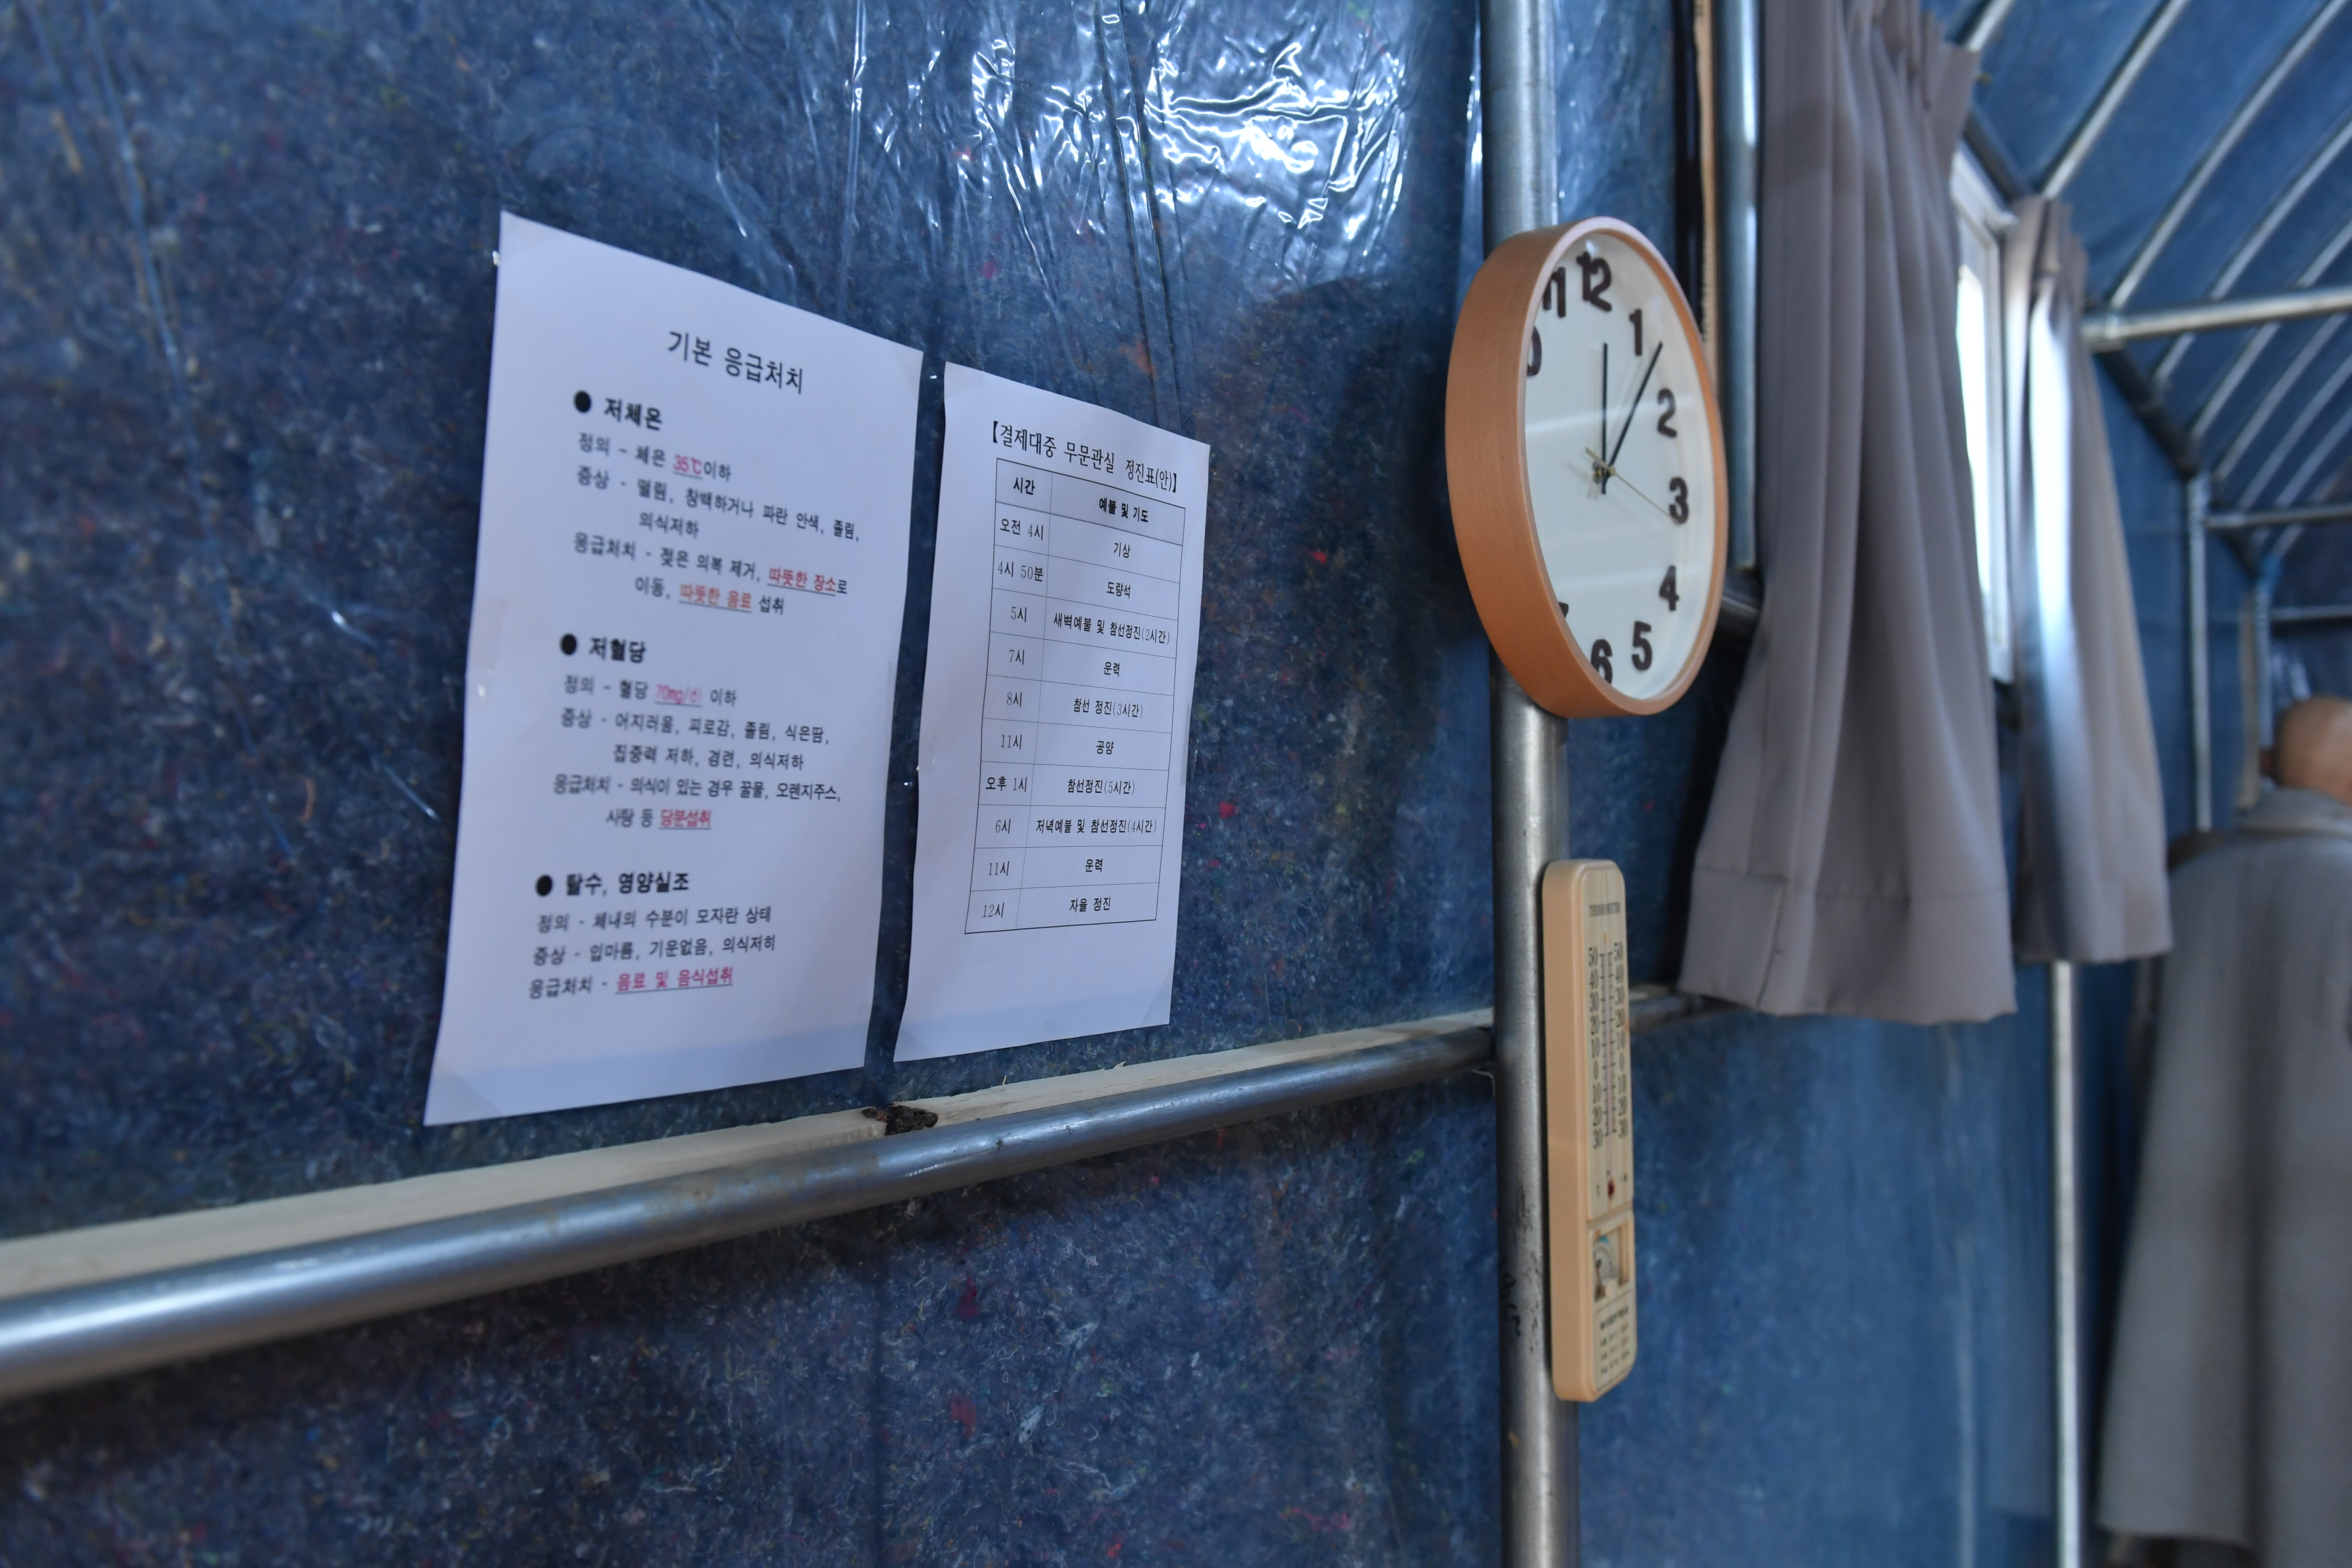 기본 응급처치
● 저체온
정의 - 체온 35℃이하
증상 - 떨림, 창백하거나 파란 안색, 졸림,
의식저하
응급처치 - 젖은 의복 제거, 따뜻한 장소로
이동, 따뜻한 음료 섭취
● 저혈당
정의 - 혈당 70mg/dl 이하
증상 - 어지러움, 피로감, 졸림, 식은땀,
집중력 저하, 경련, 의식저하
응급처치 - 의식이 있는 경우 꿀물, 오렌지주스,
사탕 등 당분섭취
● 탈수, 영양실조
정의 - 체내의 수분이 모자란 상태
증상 - 입마름, 기운없음, 의식저하
응급처치 - 음료 및 음식섭취
【결제대중 무문관실 정진표(안)】
시간 예불 및 기도
오전 4시 기상
4시 50분 도량석
5시 새벽예불 및 참선정진(2시간)
7시 운력
8시 참선 정진(3시간)
11시 공양
오후 1시 참선정진(5시간)
6시 저녁예불 및 참선정진(4시간)
11시 운력
12시 자율 정진
11 12 1 2 3 4 5 6
THERMOMETER
50 50
40 40
30 30
20 20
10 10
0 0
10 10
20 20
30 30